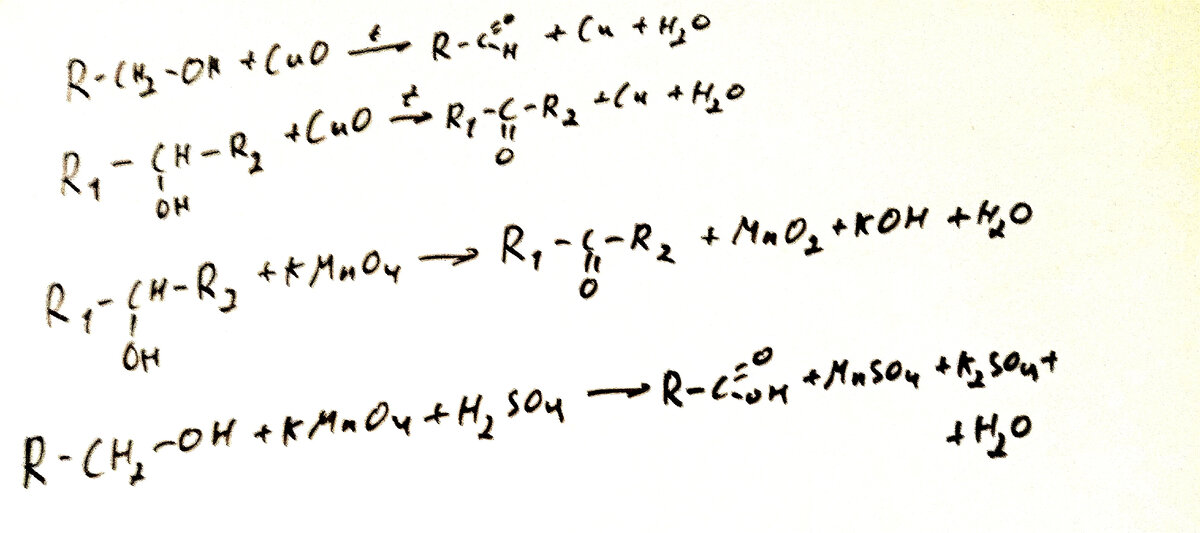 R-CH2-OH + CuO t→ R-C=O-H + Cu + H2O
R1-CH-R2 + CuO t→ R1-C-R2 + Cu + H2O
OH O
R1-CH-R2 + KMnO4 → R1-C-R2 + MnO2 + KOH + H2O
OH O
R-CH2-OH + KMnO4 + H2SO4 → R-C=O-OH + MnSO4 + K2SO4 +
+ H2O